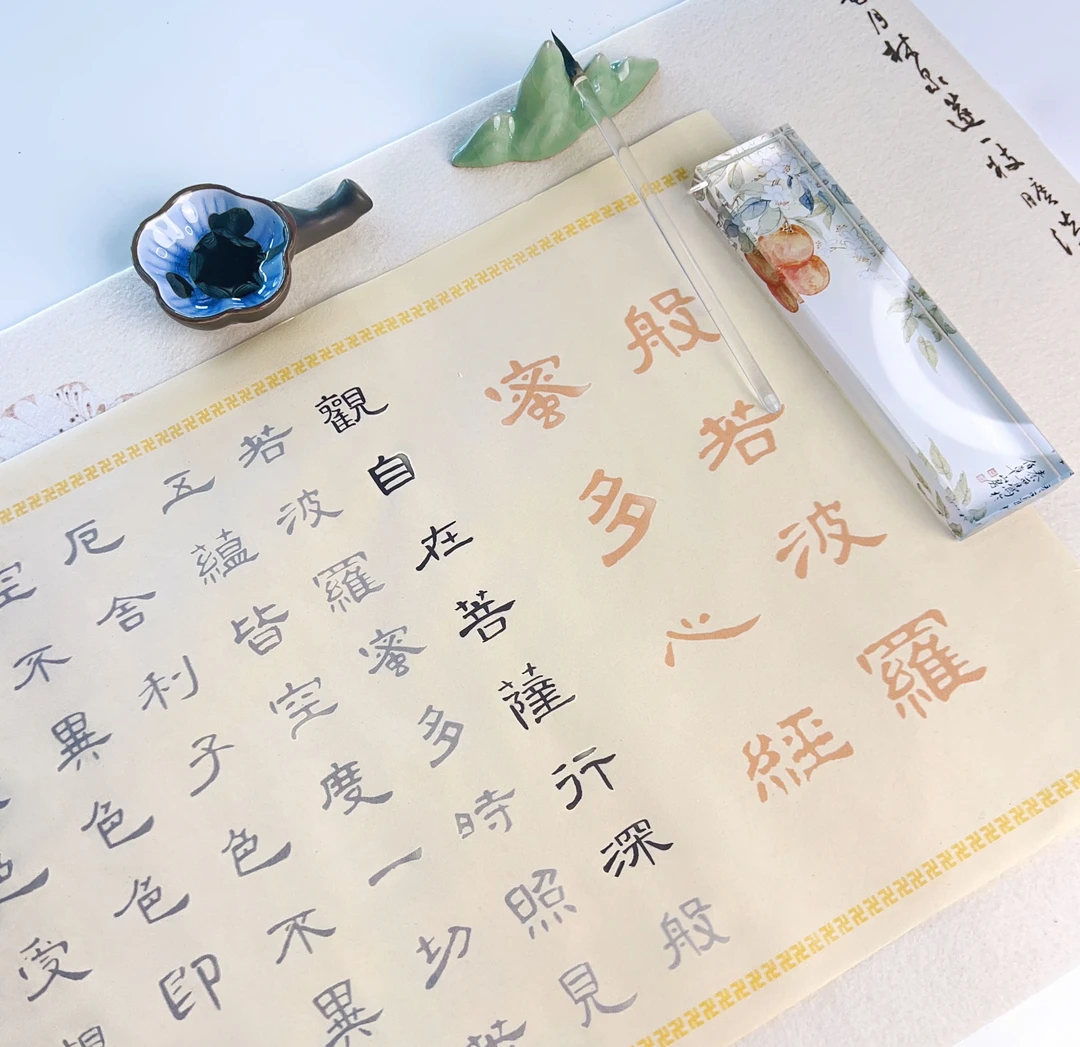 月林泉一枝
般若波羅
蜜多心經
觀自在菩薩行深般
若波羅蜜多時照見
五蘊皆空度一切苦
厄舍利子色不異
空不異色色即
色受